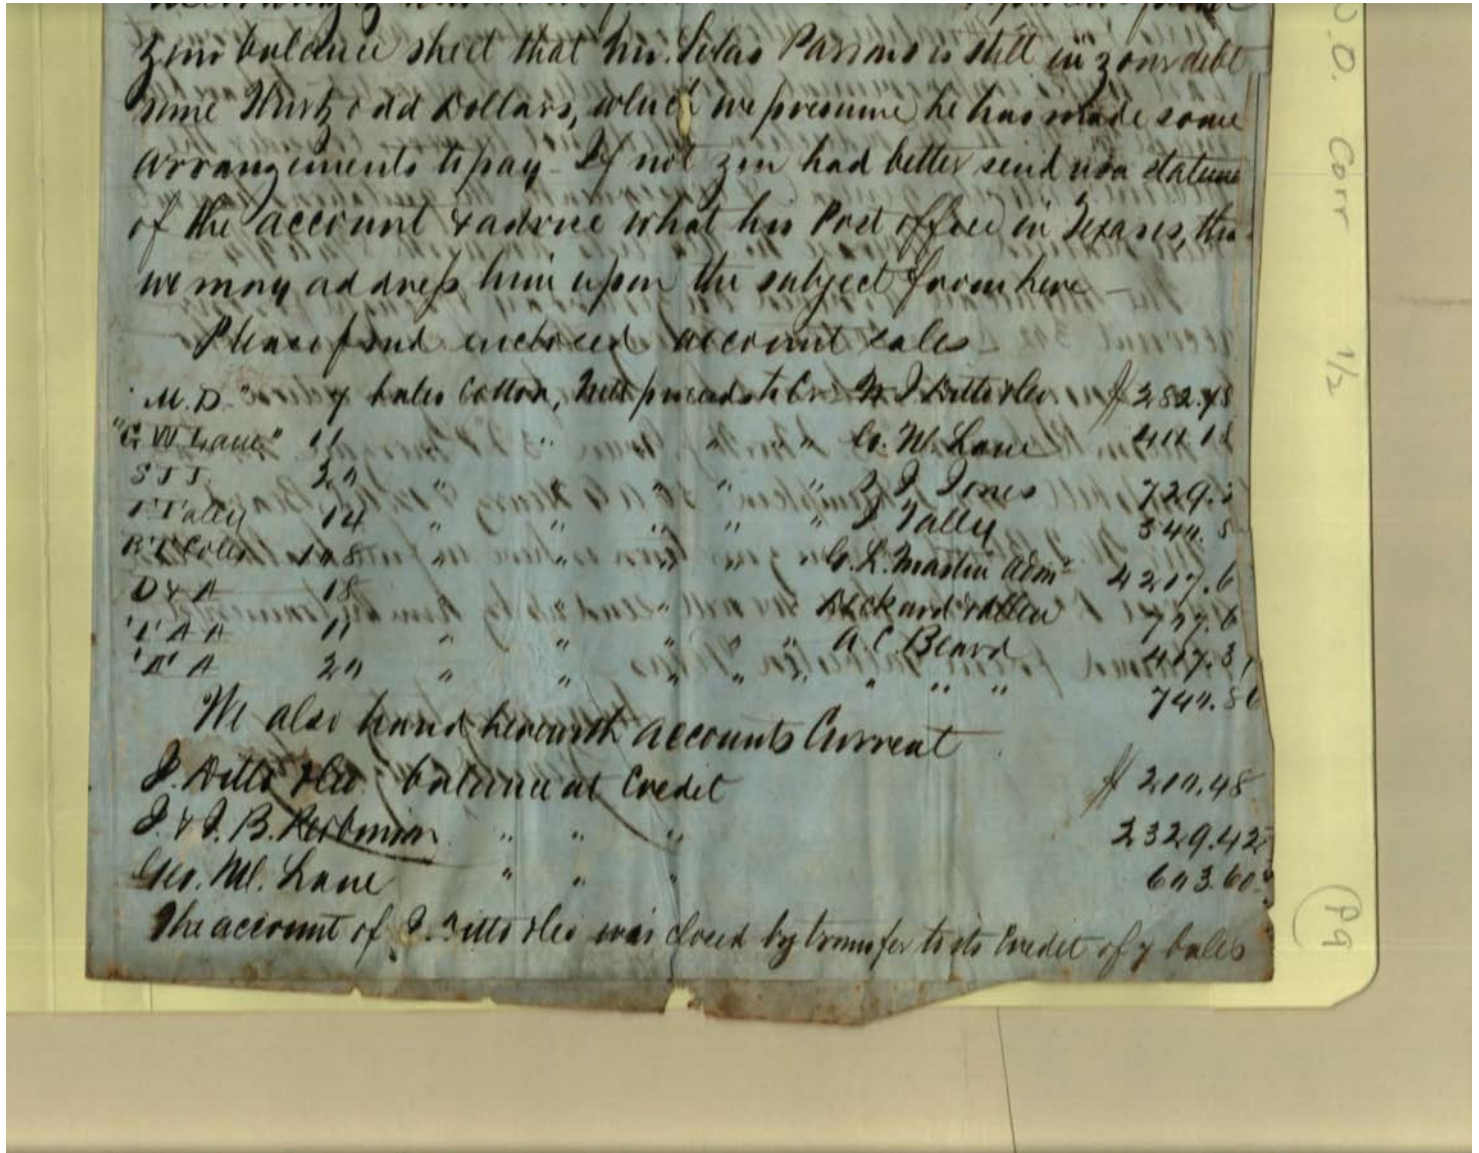 your balance sheet that Mr. Silas Parsons is still in your debt
some thirty odd Dollars, which we presume he has made some
arrangements to pay - If not you had better send us a stateme
of the account & advise what his Post office in Texas is, tha
we may address him upon the subject from here -
Please find enclosed account sales
"M.D." 7 bales Cotton, Nett proceeds to Cr J. Ditto & Co $ 282.78
"G W Lane" 11 " " " " G. W. Lane
S J J. 20 " " " " " S J Jones 729.
T Tally 14 " " " " " T Tally 340.
R T Coles 108 " " " " G. L. Martin Adm 4217.6
D & A 18 " " & Allen 777.6
"T A A 11 " " " " " A C Beard 417.3
"A" A 20 " " " " " " " " 740.86
We also hand herewith accounts Current
J. Ditto & Co. balance at Credit $ 200.48
J. & J. B. " " " 2329.42
Geo. W. Lane " " " 603.60
The account of J. Ditto & Co was closed by transfer to its Credit of 7 bales
O. Corr 1/2
(Pg